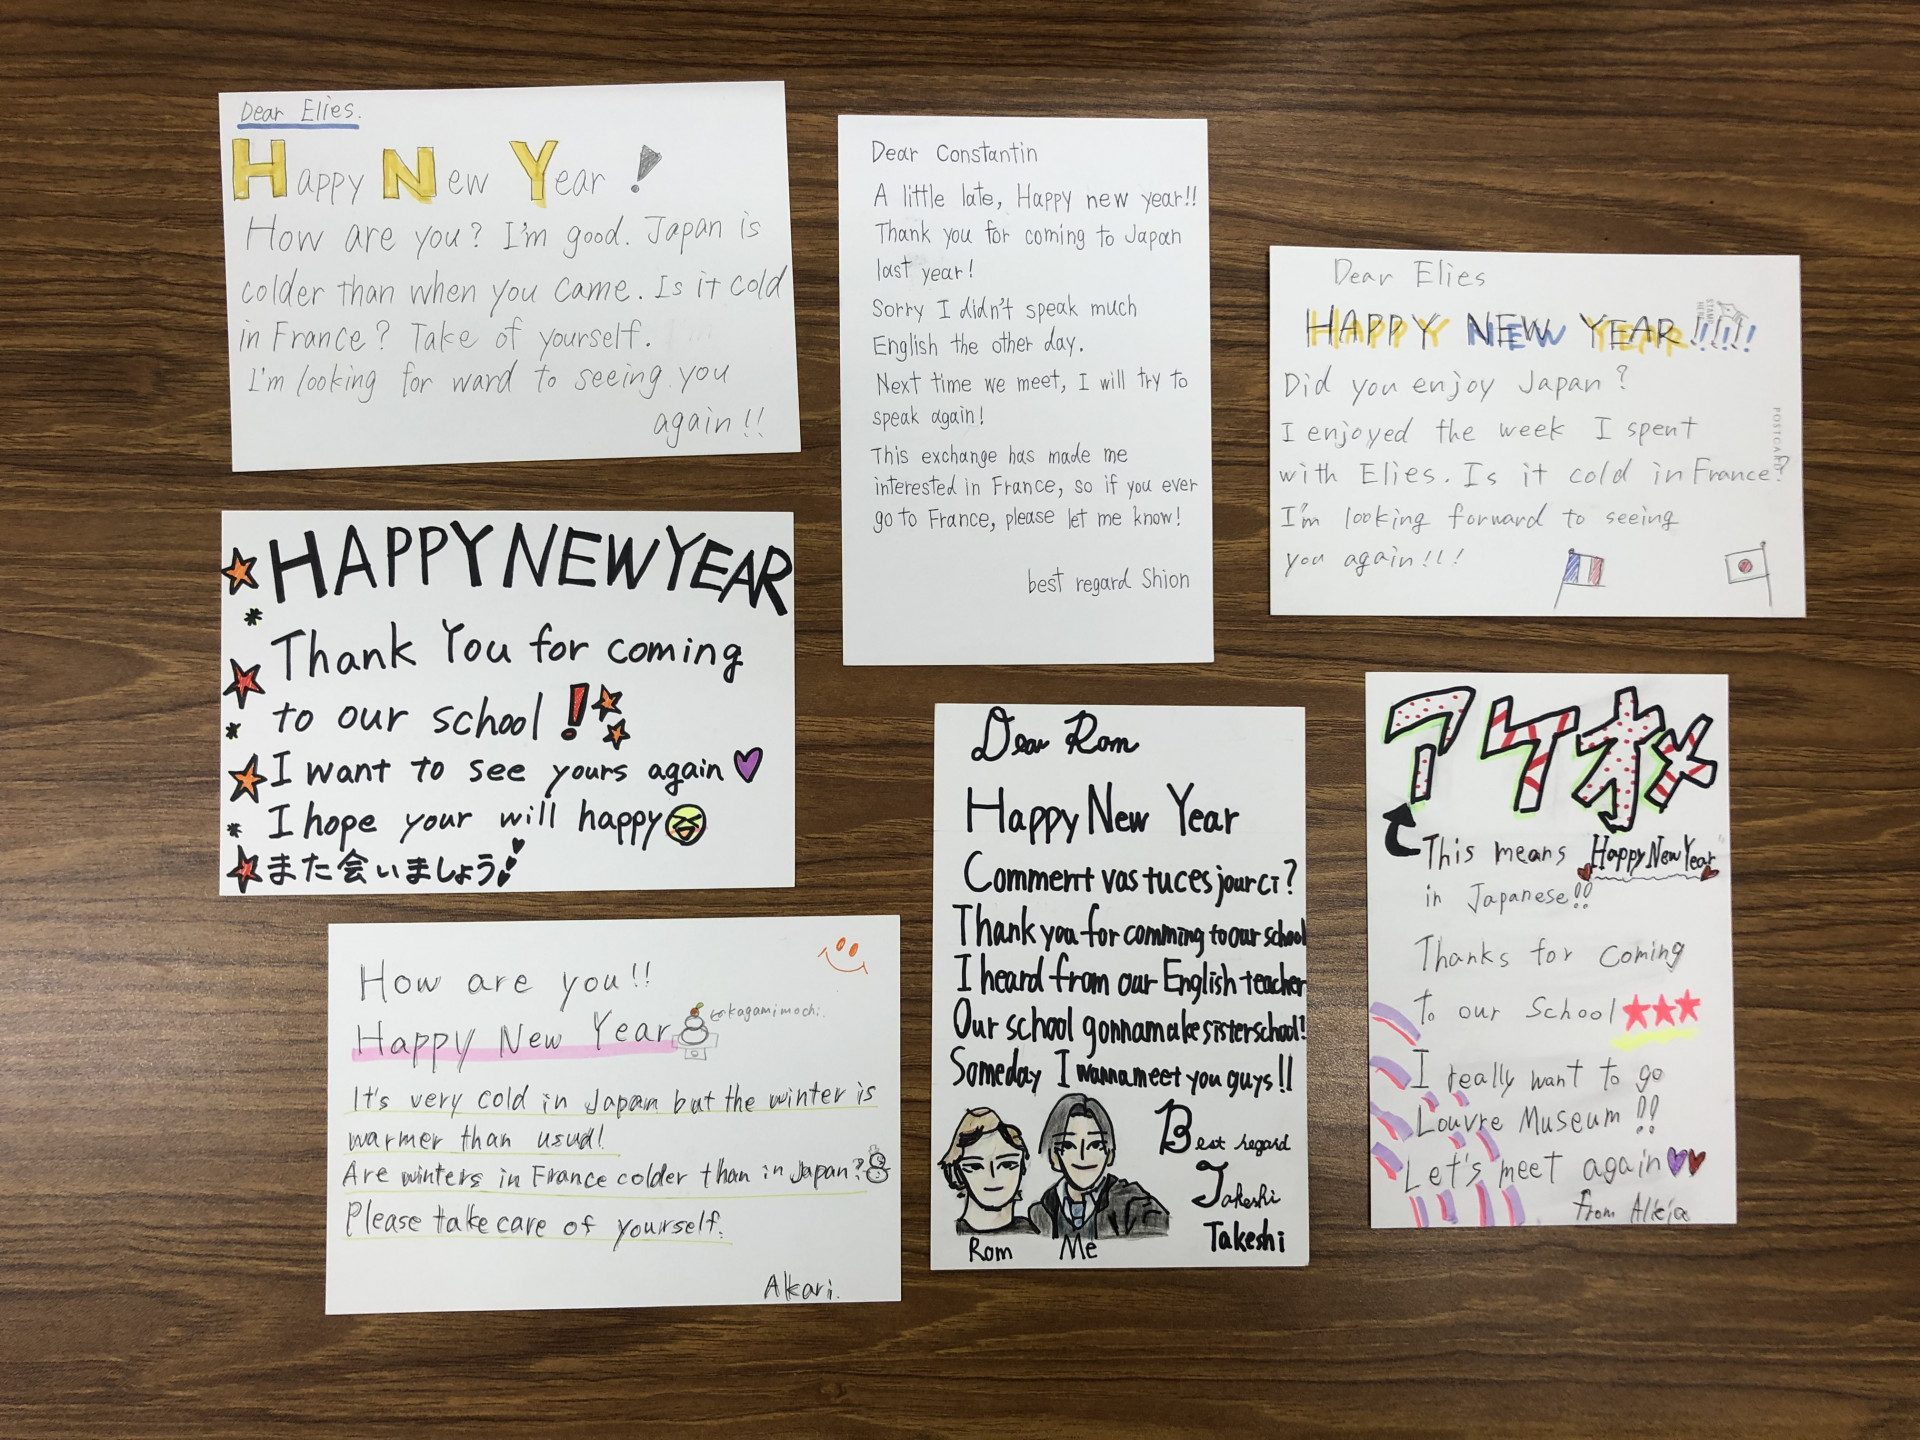 Dear Elies.
Happy New Year !
How are you? I'm good. Japan is
colder than when you came. Is it cold
in France? Take of yourself.
I'm looking for ward to seeing you
again!!
Dear Constantin
A little late, Happy new year!!
Thank you for coming to Japan
last year!
Sorry I didn't speak much
English the other day.
Next time we meet, I will try to
speak again!
This exchange has made me
interested in France, so if you ever
go to France, please let me know!
best regard Shion
Dear Elies
HAPPY NEW YEAR!!!!!
Did you enjoy Japan?
I enjoyed the week I spent
with Elies. Is it cold in France?
I'm looking forward to seeing
you again!!!
POSTCARD
HAPPY NEW YEAR
Thank You for coming
to our school!
I want to see yours again
I hope your will happy
また会いましょう
Dear Rom
Happy New Year
Comment vas tu ces jour ci?
Thank you for comming to our school
I heard from our English teacher
Our school gonna make sister school!
Someday I wanna meet you guys!!
Best regard
Takeshi
Takeshi
Rom
Me
アケオメ
This means Happy New Year
in Japanese!!
Thanks for coming
to our school
I really want to go
Louvre Museum!!
Let's meet again
from
How are you!!
Happy New Year
kagamimochi.
It's very cold in Japan but the winter is
warmer than usual!
Are winters in France colder than in Japan?
Please take care of yourself.
Akari.